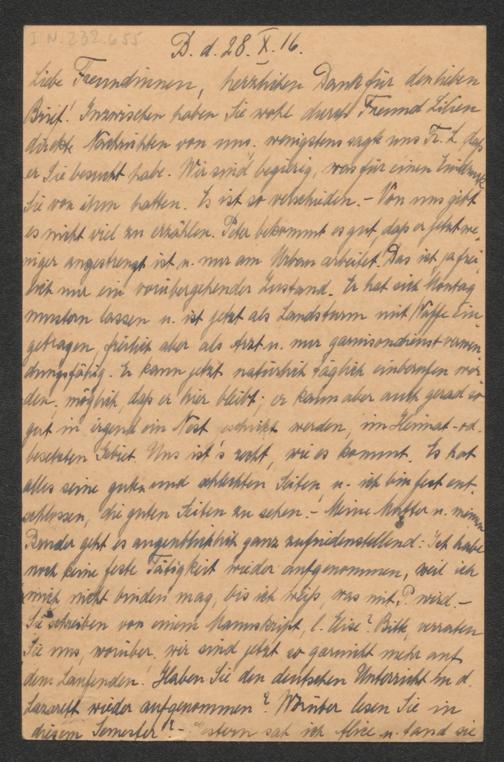 I.N. 232.655
B. d. 28. X. 16.
Liebe Freundinnen, herzlichen Dank für den lieben
Brief! Inzwischen haben Sie wohl durch Freund Lilien
direkte Nachrichten von uns. wenigstens sagte uns Fr. L., daß
er Sie besucht habe. Wir sind begierig, was für einen Eindruck
Sie von ihm hatten. Es ist so verschieden. – Von uns gibt
es nicht viel zu erzählen. Peter bekommt es gut, daß er jetzt we-
niger angestrengt ist u. nur am Urban arbeitet. Das ist ja frei-
lich nur ein vorübergehender Zustand. Er hat sich Montag
mustern lassen u. ist jetzt als Landsturm mit Waffe ein-
getragen, freilich aber als Arzt u. nur garnisondienstverwen-
dungsfähig. Er kann jetzt natürlich täglich einberufen wer-
den, möglich, daß er hier bleibt; er kann aber auch gerad so
gut in irgend ein Nest geschickt werden, im Heimat- od.
besetzten Gebiet. Uns ist's recht, wie es kommt. Es hat
alles seine guten und schlechten Seiten u. ich bin fest ent-
schlossen, die guten Seiten zu sehen. – Meine Mutter u. meinem
Bruder geht es augenblicklich ganz zufriedenstellend. Ich habe
noch keine feste Tätigkeit wieder aufgenommen, weil ich
mich nicht binden mag, bis ich weiß, was mit P. wird. –
Sie schreiben von einem Manuskript, l. Elise? Bitte, verraten
Sie uns, worüber, wir sind jetzt so garnicht mehr auf
dem Laufenden. Haben Sie den deutschen Unterricht im d.
Lazarett wieder aufgenommen? Worüber lesen Sie in
diesem Semester? – Gestern sah ich Alice u. fand sie